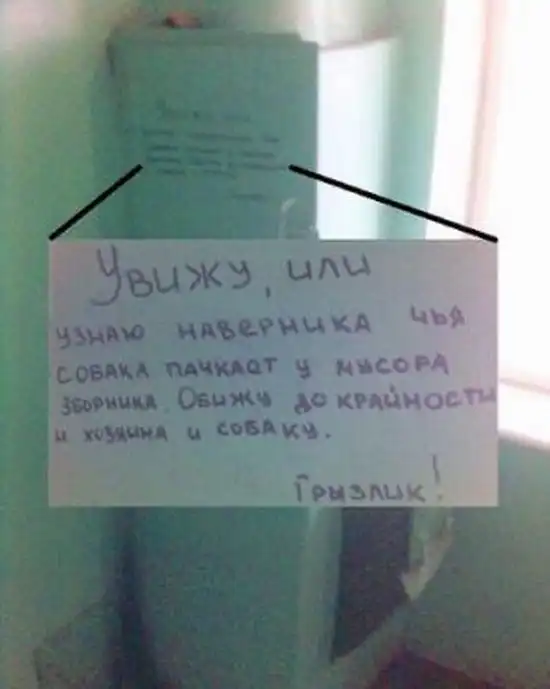 Увижу, или
узнаю наверника чья
собака пачкает у мусора
зборника. Обижу до крайности
и хозяина и собаку.
Грызлик!